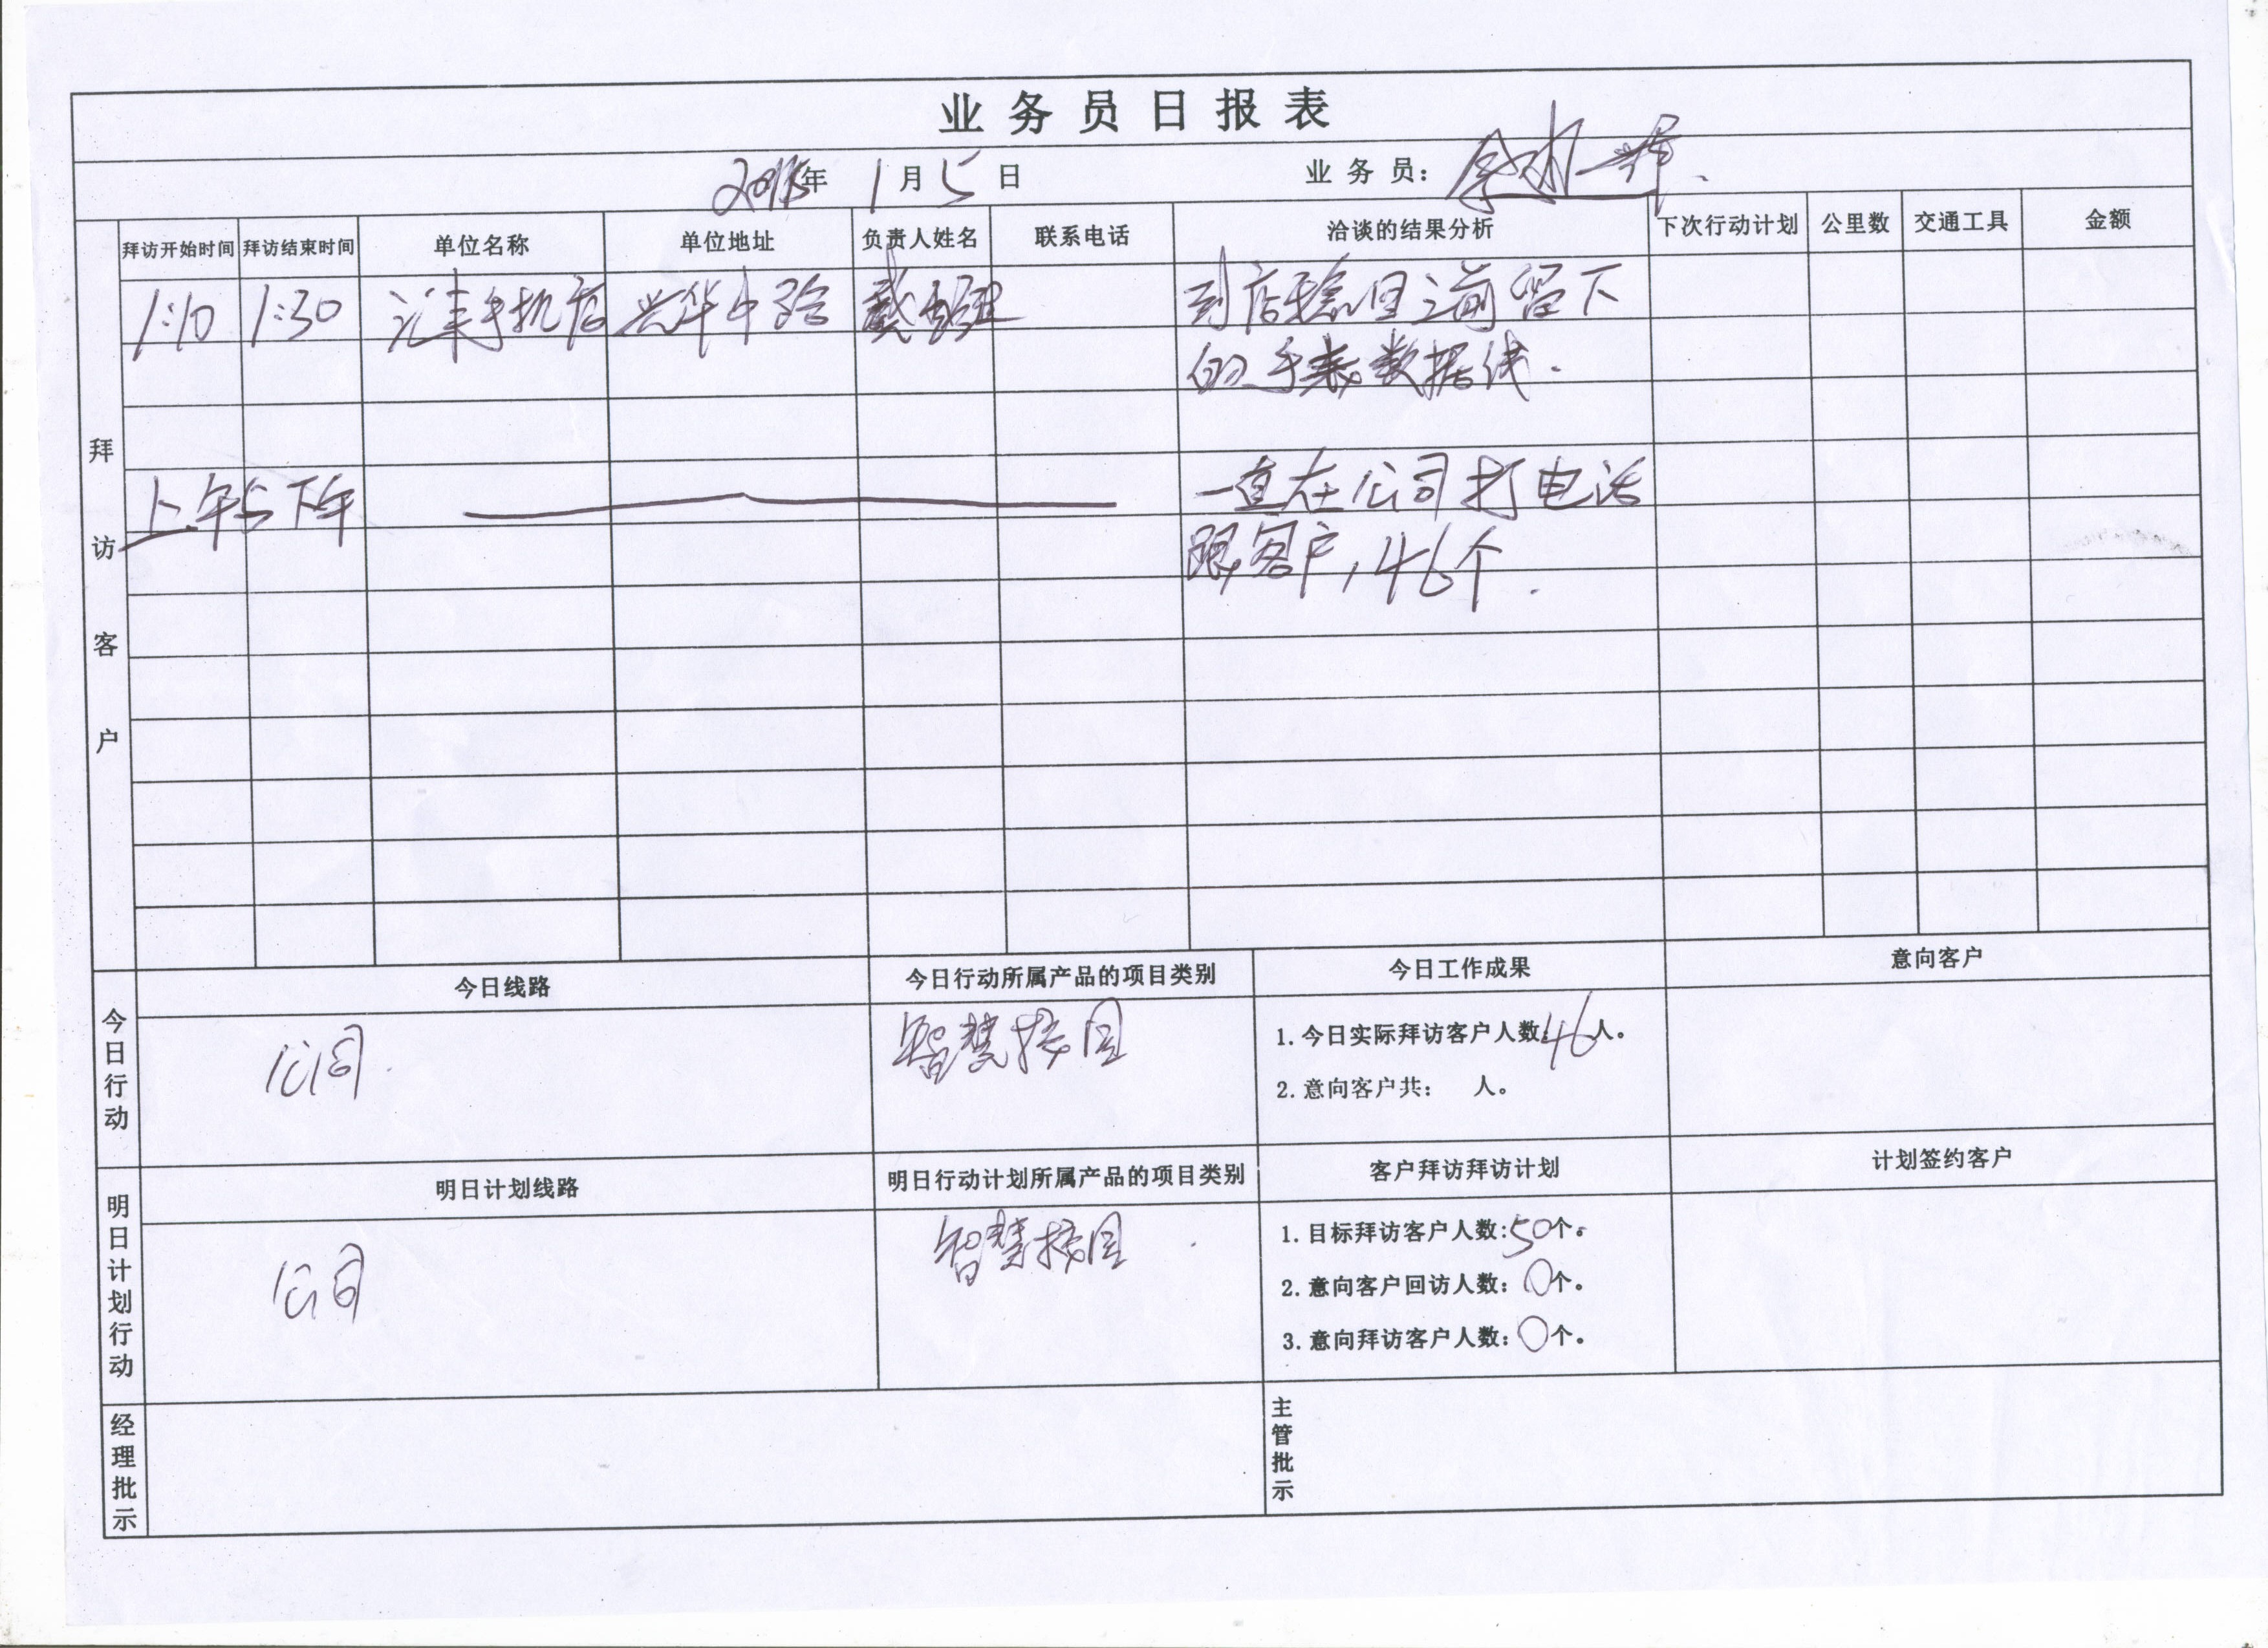 业务员日报表
年 1月5日 业务员:
拜访客户
拜访开始时间 拜访结束时间 单位名称 单位地址 负责人姓名 联系电话 洽谈的结果分析 下次行动计划 公里数 交通工具 金额
1:10 1:30 汇丰手机店 兴华中路 到店 里之前留下
的手表数据线.
上午与下午 一直在公司打电话
跟客户,46个.
今日行动
今日线路 今日行动所属产品的项目类别 今日工作成果 意向客户
公司. 智慧校园 1.今日实际拜访客户人数:46人。
2.意向客户共: 人。
明日计划行动
明日计划线路 明日行动计划所属产品的项目类别 客户拜访拜访计划 计划签约客户
公司 智慧校园. 1.目标拜访客户人数:50个。
2.意向客户回访人数:0个。
3.意向拜访客户人数:0个。
经理批示 主管批示